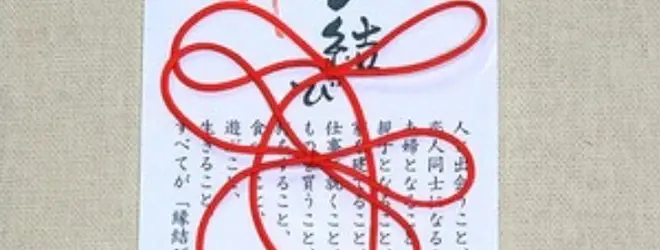 結び
人と出会うこと
恋人同士になる
夫婦となること
親子となること、
家を建てること、
仕事が続くこと、
ものを買うこと、
をすること、
食べること、
遊ぶこと、
生きること
すべてが「縁結